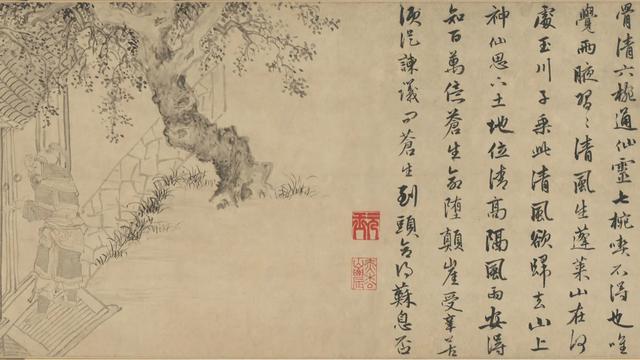 骨清六椀通仙靈七椀喫不得也唯
覺兩腋習〻清風生蓬萊山在何
處玉川子乘此清風欲歸去山上
神仙思下土地位清高隔風雨安得
知百萬億蒼生命墮顛崖受辛苦
須從諫議問蒼生到頭合得蘇息否